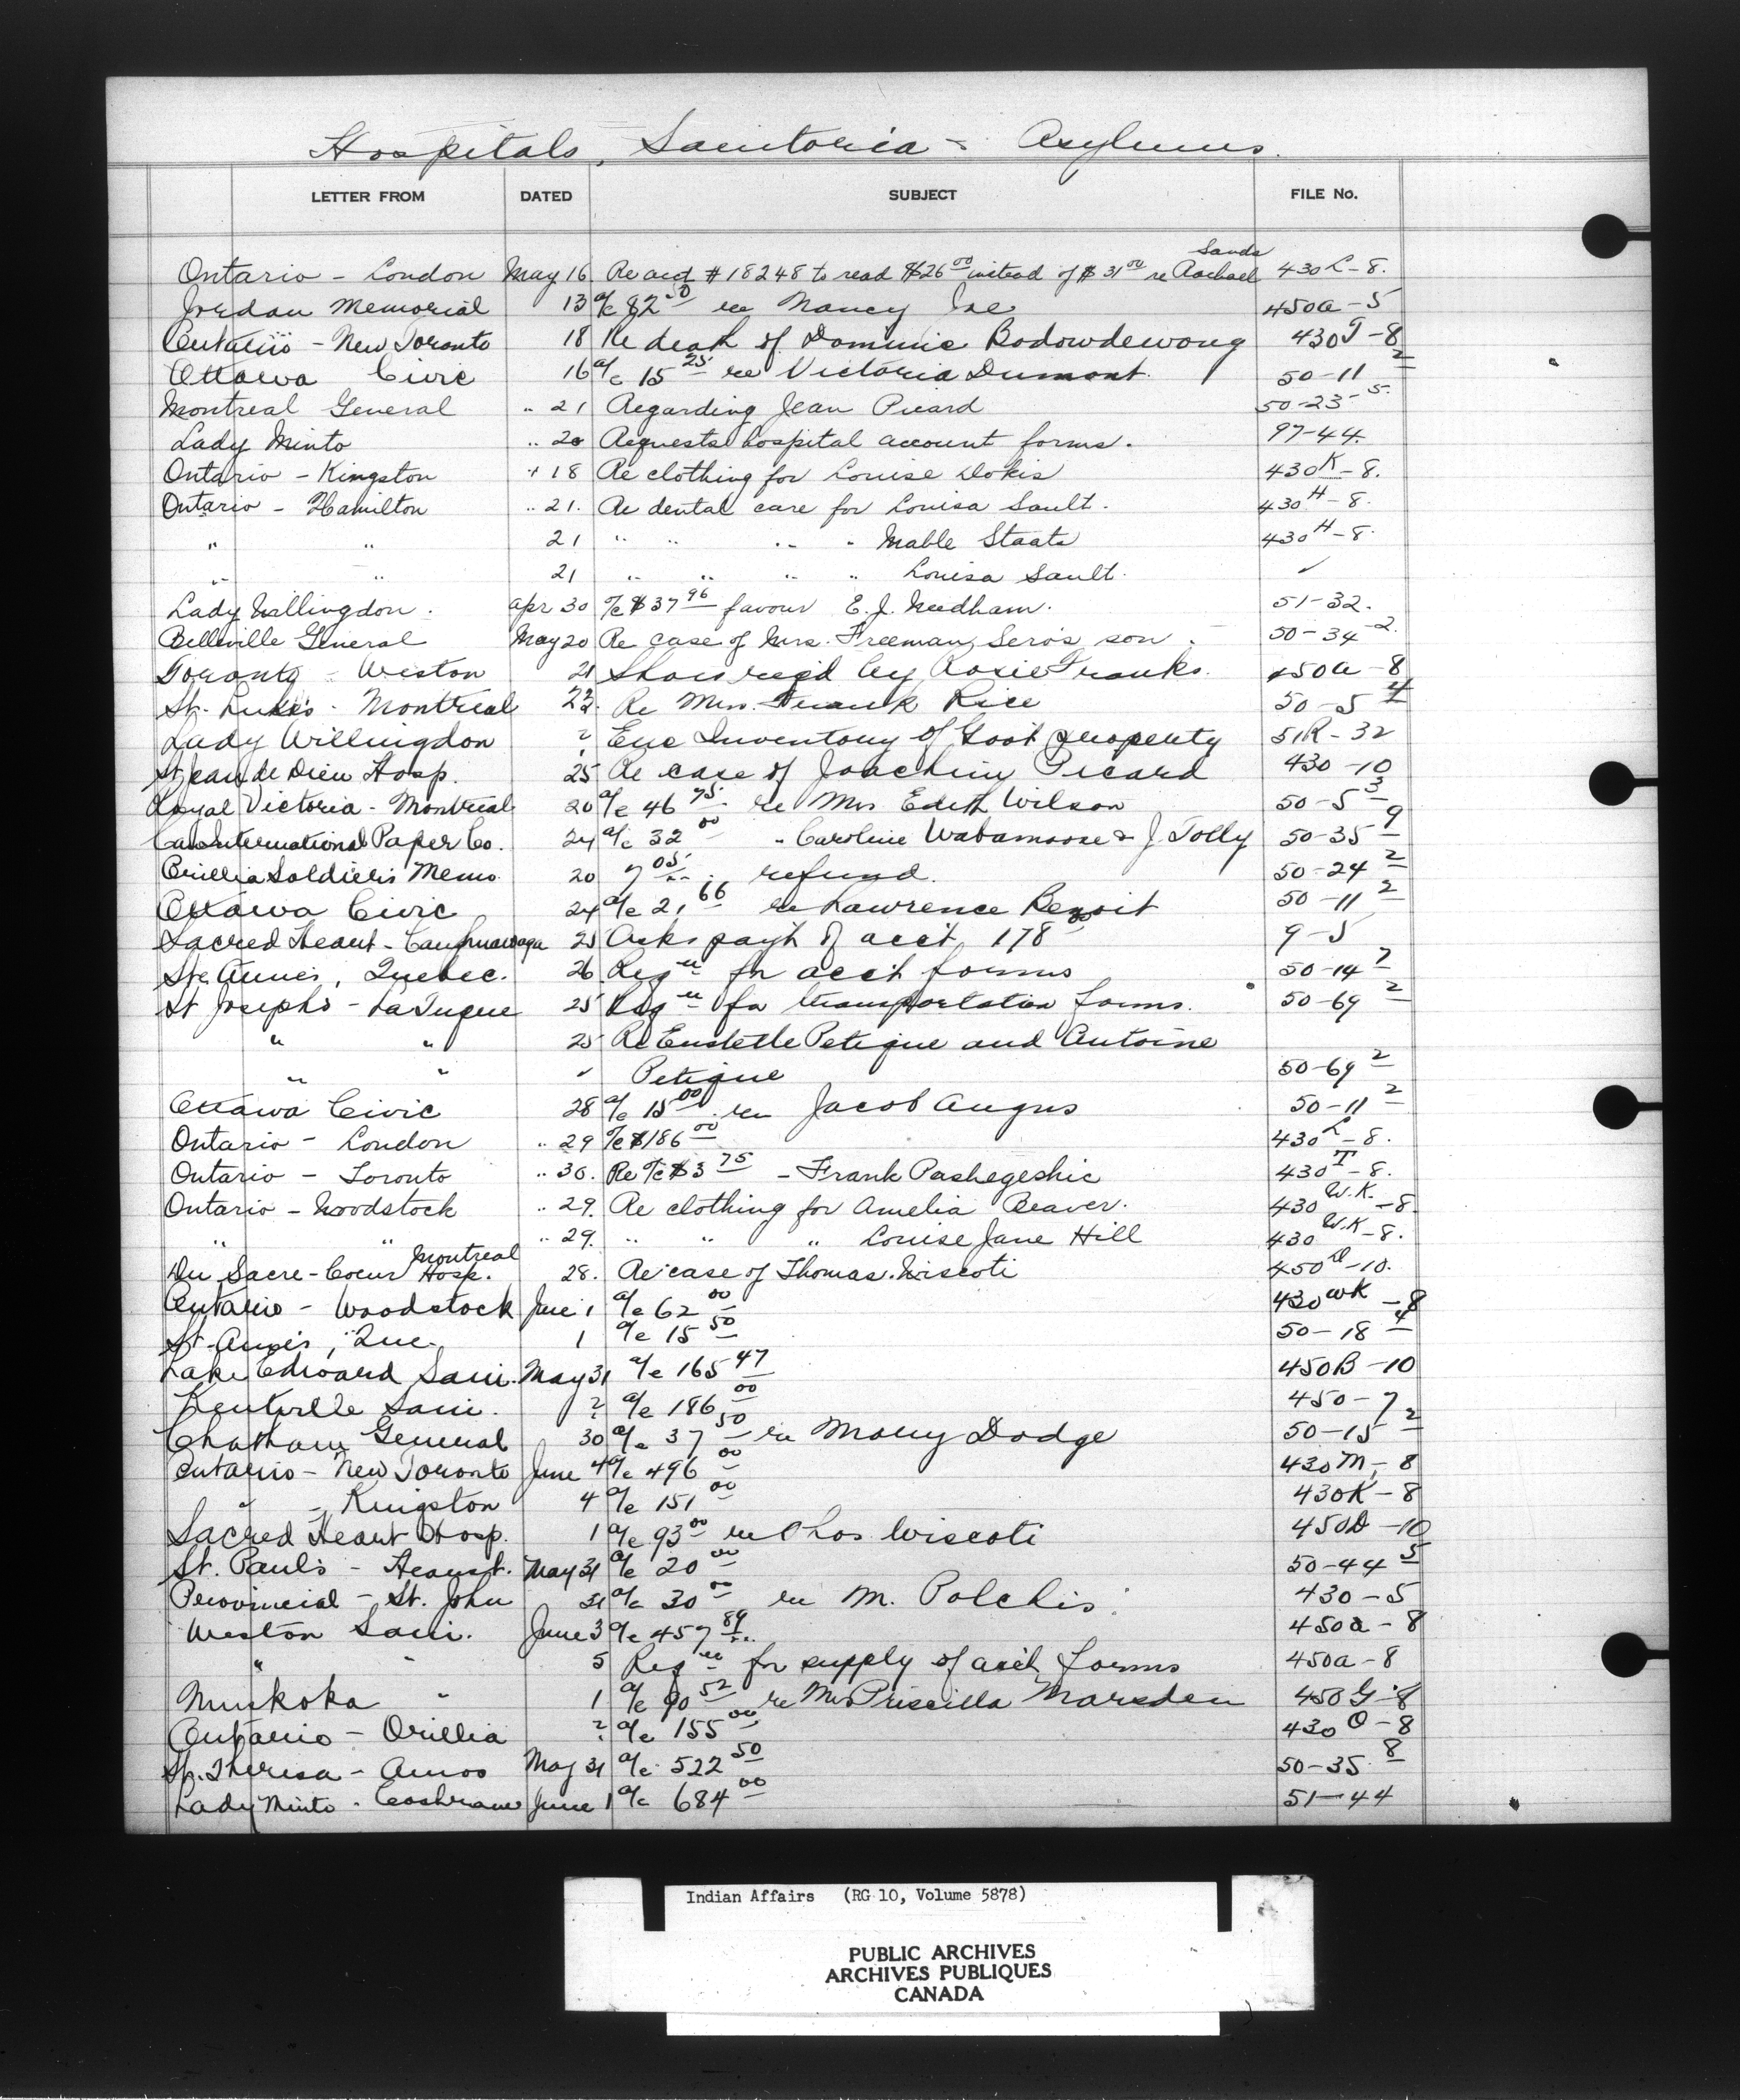 Hospitals, Sanitoria - Asylums.
LETTER FROM DATED SUBJECT FILE No.
Sands
Ontario - London May 16 Re acct #18248 to read $26 00 instead of $31 00 re Rachael 430 L-8.
Jordan Memorial 13 a/c 82 50 re Nancy Joe 450a-5
Ontario - New Toronto 18 Re death of Dominic Bodowdewong 430 T-8
Ottawa Civic 16 a/c 15 25 re Victoria Dumont 50-11 2
Montreal General " 21 Regarding Jean Picard 50-23-5.
Lady Minto " 20 Requests hospital account forms. 97-44.
Ontario - Kingston " 18 Re clothing for Louise Dokis 430 K-8.
Ontario - Hamilton " 21. Re dental care for Louisa Sault. 430 H-8.
" " 21 " " " " Mable Staats 430 H-8.
" " 21 " " " " Louisa Sault. ✓
Lady Willingdon. Apr 30 a/c $37 96 favour E. J. Needham. 51-32.
Belleville General May 20 Re case of Mrs. Freeman Sero's son. 50-34-2.
Toronto - Weston 21 Shoes req'd by Rosie Franks. 450a-8
St. Luke's - Montreal 22. Re Mrs. Frank Rice 50-5 4
Lady Willingdon ? Enc Inventory of Govt property 51R-32
St Jean de Dieu Hosp. 25 Re case of Joachim Picard 430-10
Royal Victoria - Montreal 20 a/c 46 75 re Mrs Edith Wilson 50-5 3
Can International Paper Co. 24 a/c 32 00 " Caroline Wabamoose & J. Jolly 50-35 9
Orillia Soldiers Memo. 20 7 05 refund. 50-24 2
Ottawa Civic 24 a/c 21 66 re Lawrence Benoit 50-11 2
Sacred Heart - Caughnawaga 25 Asks pay't of acc't 178 00 9-5
Ste. Anne's, Quebec. 26 Reqn for acc't forms 50-14 7
St Joseph's - La Tuque 25 Reqn for transportation forms. 50-69 2
" " 25 Re Eustelle Petique and Antoine
" " ✓ Petique 50-69 2
Ottawa Civic 28 a/c 15 00 re Jacob Angus 50-11 2
Ontario - London " 29 a/c $186 00 430 L-8.
Ontario - Toronto " 30. Re a/c $3 75 - Frank Pashegeshic 430 T-8.
Ontario - Woodstock " 29. Re clothing for Amelia Beaver. 430 W.K.-8
" " " 29. " " " Louise Jane Hill 430 W.K-8.
Montreal
Du Sacre-Coeur Hosp. 28. Re case of Thomas Wiscoti 450 D-10.
Ontario - Woodstock June 1 a/c 62 00 430 WK-8
St. Anne's, Que. 1 a/c 15 50 50-18 4
Lake Edward Sani. May 31 a/c 165 47 450B-10
Kentville Sani. ? a/c 186 00 450-7
Chatham General 30 a/c 37 50 re Mary Dodge 50-15 2
Ontario - New Toronto June 4 a/c 496 00 430M-8
" - Kingston 4 a/c 151 00 430K-8
Sacred Heart Hosp. 1 a/c 93 00 re Thos Wiscoti 450D-10
St. Paul's - Hearst. May 31 a/c 20 00 50-44 5
Provincial - St. John 31 a/c 30 00 re M. Polchis. 430-5
Weston Sani. June 3 a/c 457 89 450a-8
" " 5 Reqn for supply of acct forms 450a-8
Muskoka " 1 a/c 90 52 re Mrs Priscilla Marsden 450G-8
Ontario - Orillia ? a/c 155 00 430 O-8
St. Theresa - Amos May 31 a/c 522 50 50-35 8
Lady Minto - Cochrane June 1 a/c 684 00 51-44
Indian Affairs (RG 10, Volume 5878)
PUBLIC ARCHIVES
ARCHIVES PUBLIQUES
CANADA